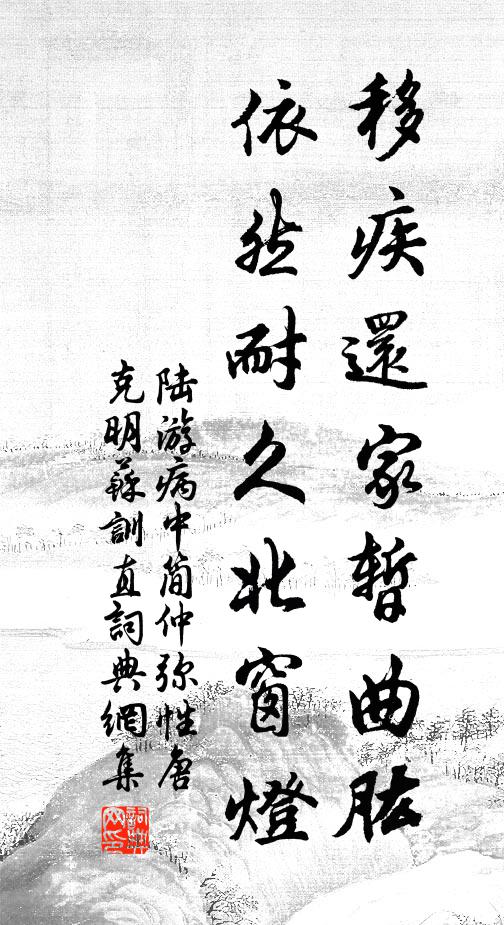 移疾還家暫曲肱
依然耐久北窗燈
陆游病中简仲弥性唐
克明蘇訓直詞典網集